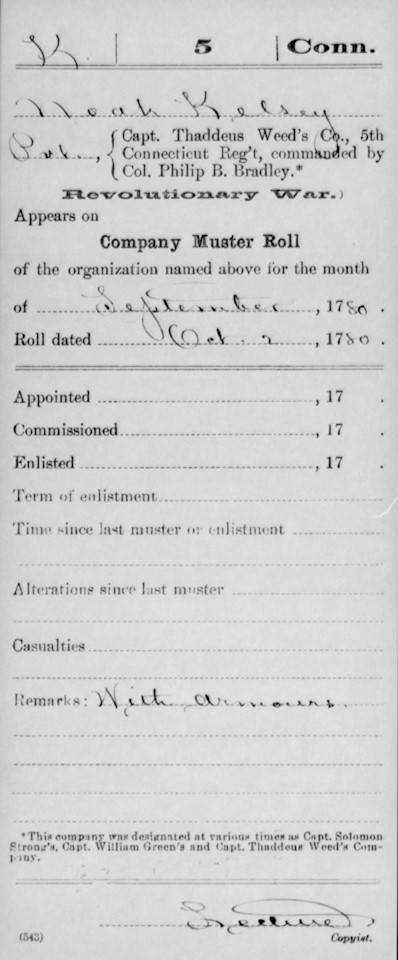 K | 5 | Conn.
Noah Kelsey
Pvt., { Capt. Thaddeus Weed's Co., 5th
Connecticut Reg't, commanded by
Col. Philip B. Bradley.*
Revolutionary War.)
Appears on
Company Muster Roll
of the organization named above for the month
of September, 1780.
Roll dated Oct. 2, 1780.
Appointed, 17 .
Commissioned, 17 .
Enlisted, 17 .
Term of enlistment
Time since last muster or enlistment
Alterations since last muster
Casualties
Remarks: With armours.
*This company was designated at various times as Capt. Solomon
Strong's, Capt. William Green's and Capt. Thaddeus Weed's Com-
pany.
(543) Copyist.